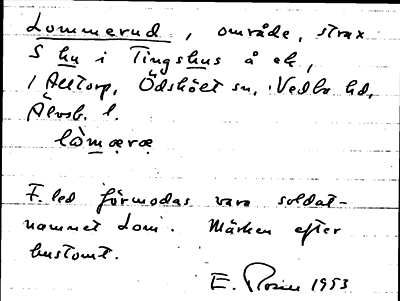 Lommerud, område, strax
S hu i Tingshus å ek,
1 Alltorp, Ödskölt sn, Vedbo hd,
Älvsb. l.
lòmærœ
F. led förmodas vara soldat-
namnet Lom. Märken efter
hustomt.
E. Rosén 1953